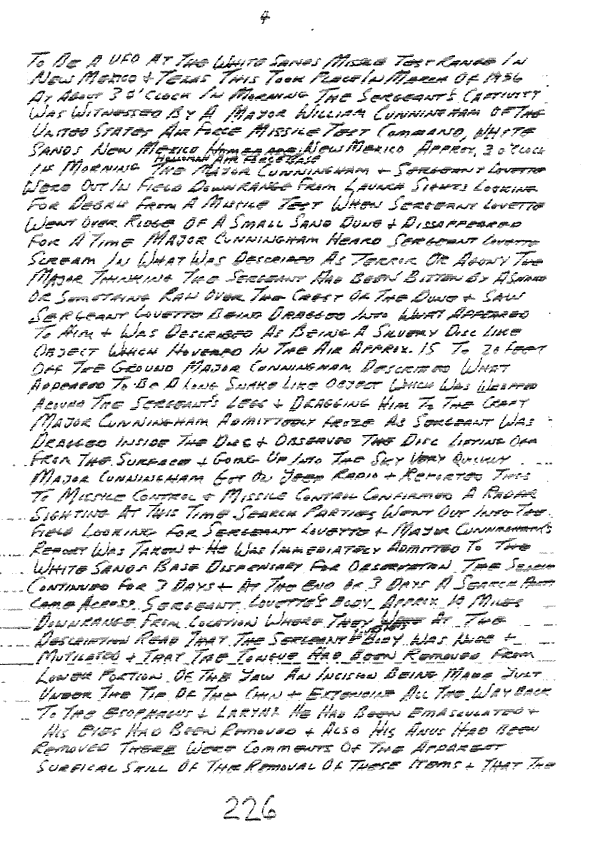 4
TO BE A UFO AT THE WHITE SANDS MISSLE TEST RANGE IN
NEW MEXICO + TEXAS THIS TOOK PLACE IN MARCH OF 1956
AT ABOUT 3 O'CLOCK IN MORNING THE SERGEANT'S CAPTIVITY
WAS WITNESSED BY A MAJOR WILLIAM CUNNINGHAM OF THE
UNITED STATES AIR FORCE MISSILE TEST COMMAND, WHITE
SANDS NEW MEXICO NEW MEXICO APPROX. 3 O'CLOCK
HOLLOMAN AIR FORCE BASE
IN MORNING THE MAJOR CUNNINGHAM + SERGEANT LOVETTE
WERE OUT IN FIELD DOWNRANGE FROM LAUNCH SIGHTS LOOKING
FOR DEBRIS FROM A MISSILE TEST WHEN SERGEANT LOVETTE
WENT OVER RIDGE OF A SMALL SAND DUNE + DISSAPPEARED
FOR A TIME MAJOR CUNNINGHAM HEARD SERGEANT LOVETTE
SCREAM IN WHAT WAS DESCRIBED AS TERROR OR AGONY THE
MAJOR THINKING THE SERGEANT HAD BEEN BITTEN BY A SNAKE
OR SOMETHING RAN OVER THE CREST OF THE DUNE + SAW
SERGEANT LOVETTE BEING DRAGGED INTO WHAT APPEARED
TO HIM + WAS DESCRIBED AS BEING A SILVERY DISC LIKE
OBJECT WHICH HOVERED IN THE AIR APPROX. 15 TO 20 FEET
OFF THE GROUND MAJOR CUNNINGHAM DESCRIBED WHAT
APPEARED TO BE A LONG SNAKE LIKE OBJECT WHICH WAS WRAPPED
AROUND THE SERGEANT'S LEGS + DRAGGING HIM TO THE CRAFT
MAJOR CUNNINGHAM ADMITTEDLY FROZE AS SERGEANT WAS
DRAGGED INSIDE THE DISC + OBSERVED THE DISC LIFTING OFF
FROM THE SURFACE + GOING UP INTO THE SKY VERY QUICKLY
MAJOR CUNNINGHAM GOT ON JEEP RADIO + REPORTED THIS
TO MISSILE CONTROL + MISSILE CONTROL CONFIRMED A RADAR
SIGHTING AT THIS TIME SEARCH PARTIES WENT OUT INTO THE
FIELD LOOKING FOR SERGEANT LOVETTE + MAJOR CUNNINGHAM'S
REPORT WAS TAKEN + HE WAS IMMEDIATELY ADMITTED TO THE
WHITE SANDS BASE DISPENSARY FOR OBSERVATION THE SEARCH
CONTINUED FOR 3 DAYS + AT THE END OF 3 DAYS A SEARCH PARTY
CAME ACROSS SERGEANT LOVETTE'S BODY APPROX 10 MILES
DOWNRANGE FROM LOCATION WHERE THEY WERE AT THE
DESCRIPTION READ THAT THE SERGEANT'S BODY WAS NUDE +
MUTILATED + THAT THE TONGUE HAD BEEN REMOVED FROM
LOWER PORTION OF THE JAW AN INCISION BEING MADE JUST
UNDER THE TIP OF THE CHIN + EXTENDING ALL THE WAY BACK
TO THE ESOPHAGUS + LARYNX HE HAD BEEN EMASCULATED +
HIS EYES HAD BEEN REMOVED + ALSO HIS ANUS HAD BEEN
REMOVED THERE WERE COMMENTS OF THE APPARENT
SURGICAL SKILL OF THE REMOVAL OF THESE ITEMS + THAT THE
226